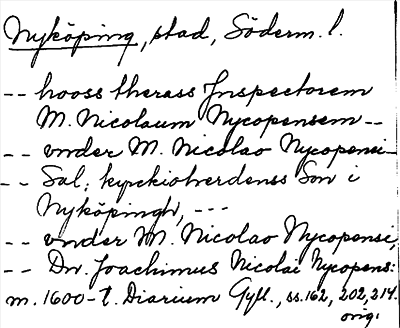 Nyköping, stad, Söderm. l.
-- hooss theras Inspectorem
M. Nicolaum Nycopensem --
-- vnder M. Nicolao Nycopensi --
-- Sal: kyrckioherdenss Son i
Nyköpingh, ---
-- vnder M. Nicolao Nycopensi,
-- Dn. Joachimus Nicolai Nycopens:
m. 1600-t. Diarium Gyll., ss. 162, 202, 214.
orig.